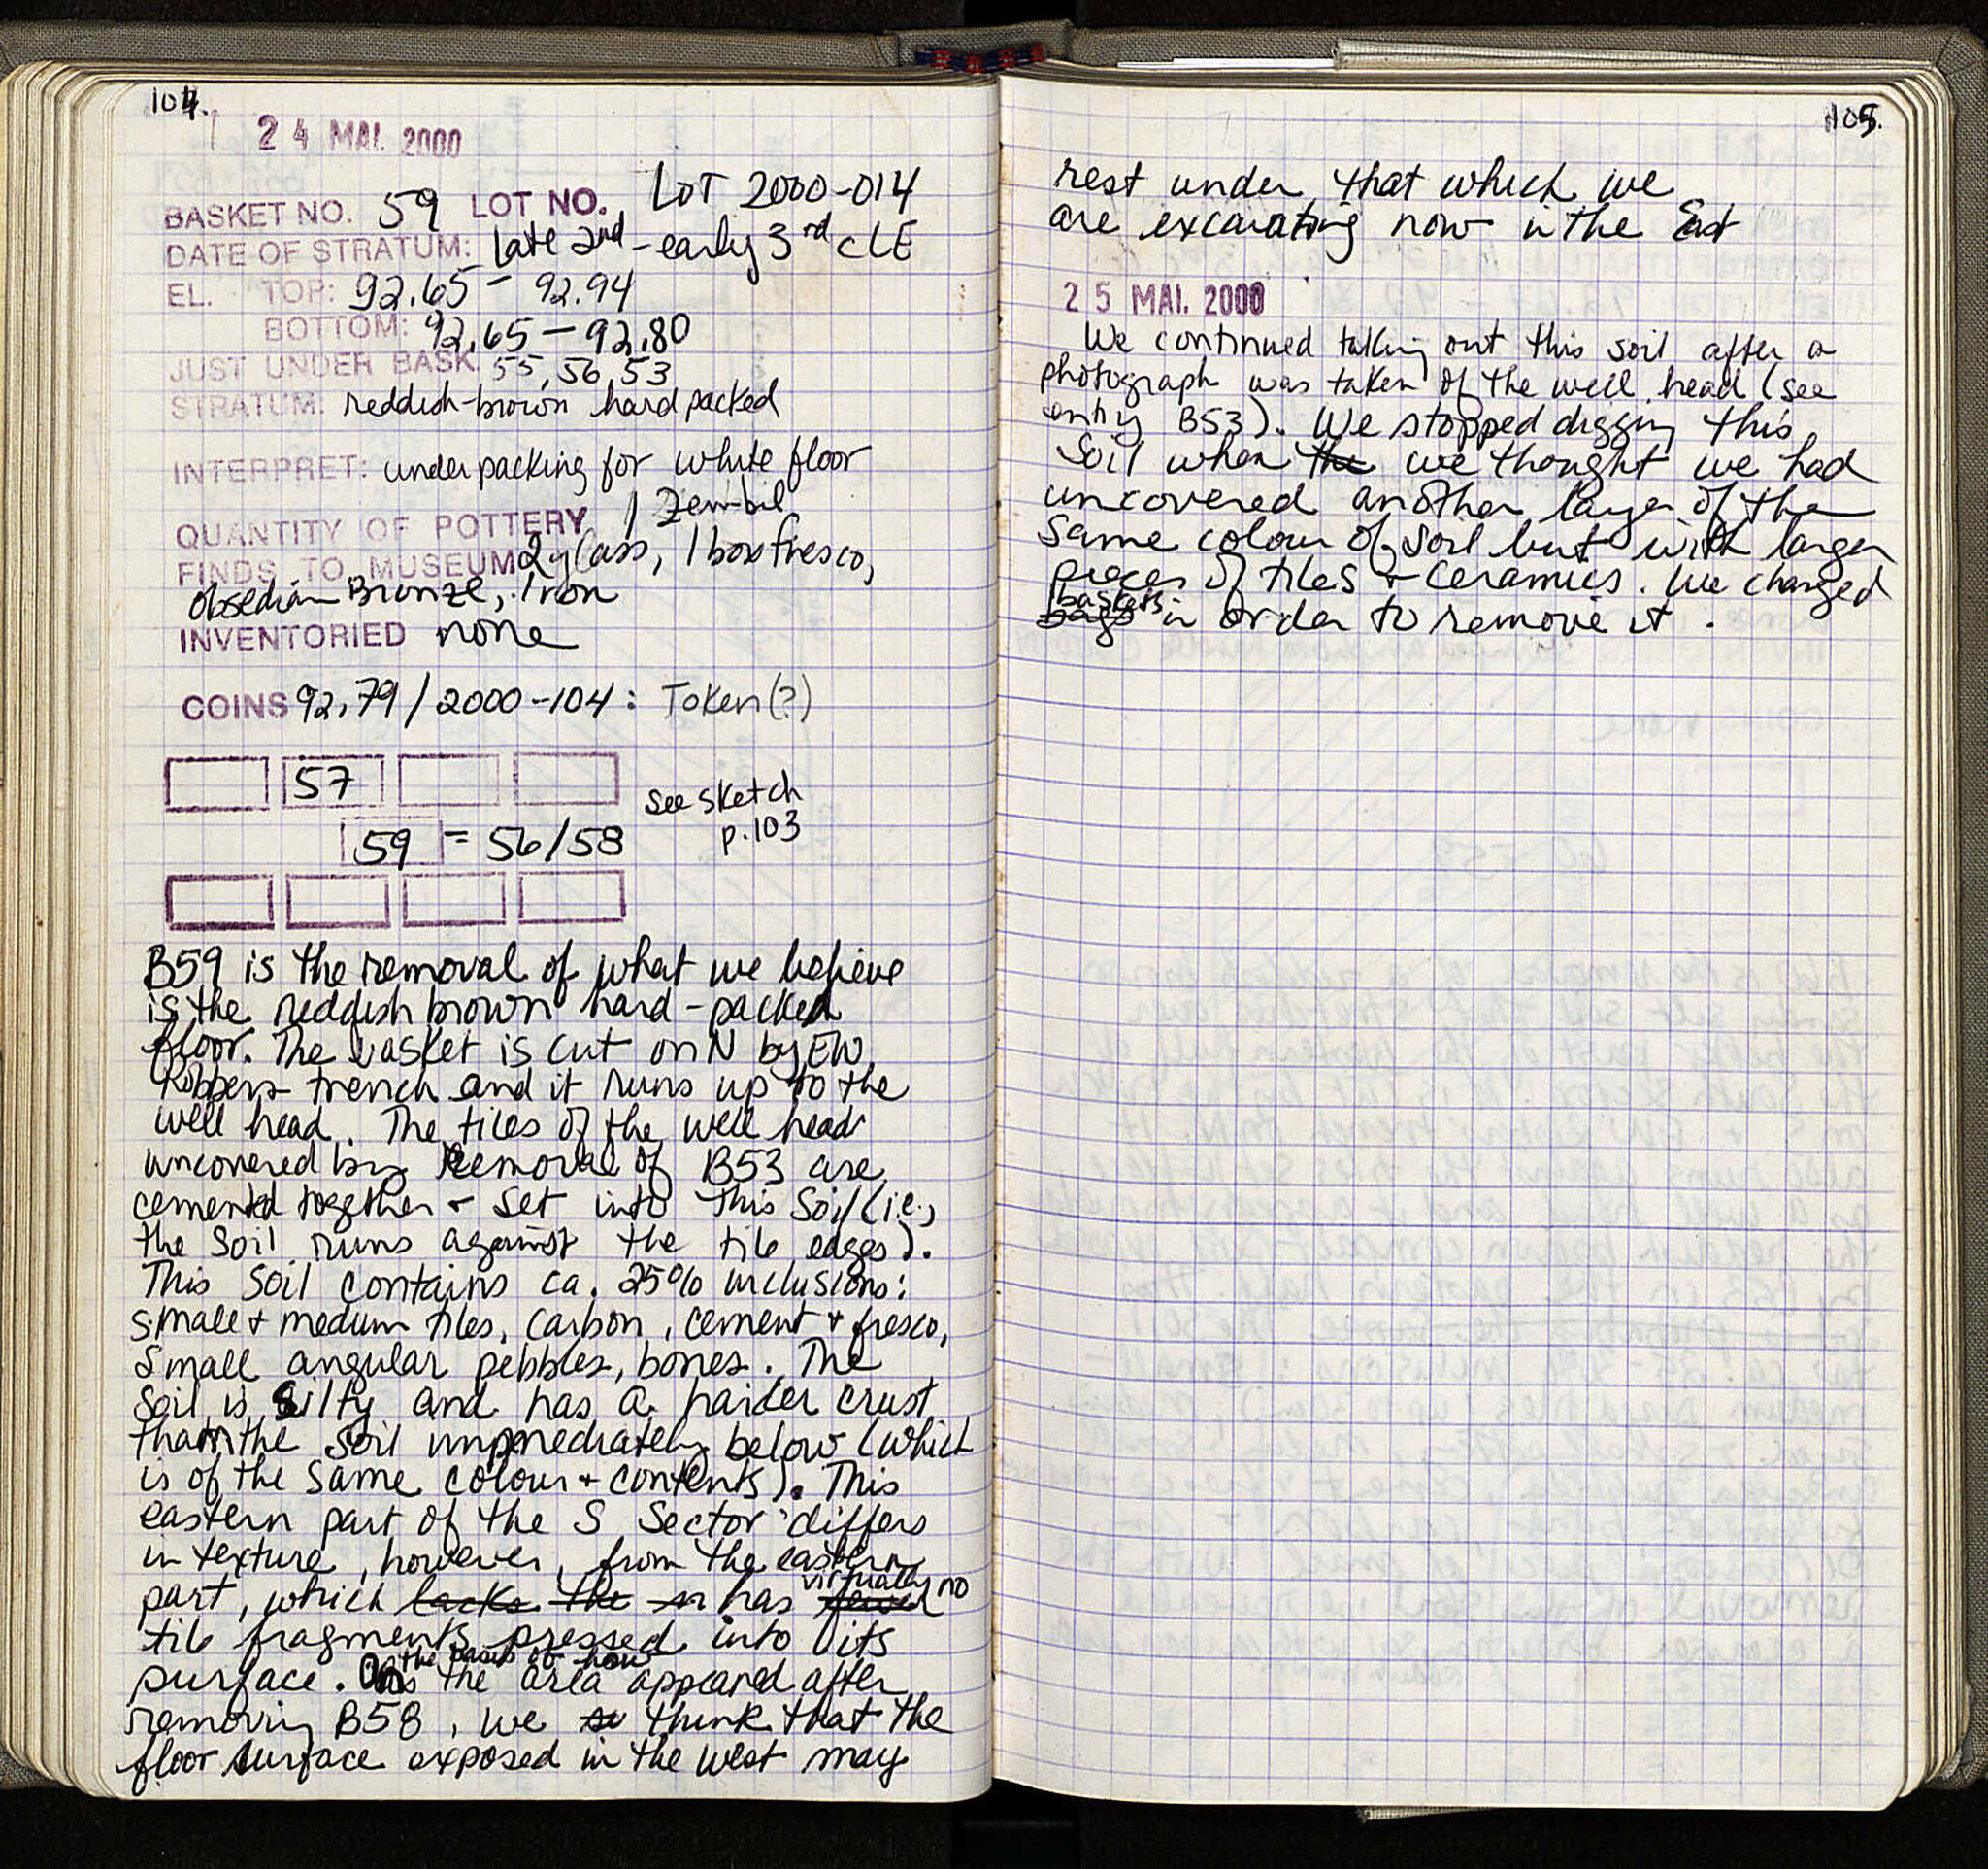 104.
24 MAI. 2000
LOT 2000-014
BASKET NO. 59 LOT NO.
DATE OF STRATUM: late 2nd - early 3rd cCE
EL. TOP: 92.65 - 92.94
BOTTOM: 92.65 - 92.80
JUST UNDER BASK. 55, 56, 53
STRATUM: reddish-brown hard packed
INTERPRET: underpacking for white floor
QUANTITY OF POTTERY 1 Zembil
FINDS TO MUSEUM 2 glass, 1 box fresco,
obsedian Bronze, Iron
INVENTORIED none
COINS 92.79 / 2000-104: Token (?)
57
see sketch
p. 103
59 = 56/58
B59 is the removal of what we believe
is the reddish brown hard-packed
floor. The basket is cut on N by EW
Robbers trench and it runs up to the
well head. The tiles of the well head
uncovered by Removal of B53 are
cemented together + set into this soil (i.e.,
the soil runs against the tile edges).
This soil contains ca. 25% inclusions:
small + medium tiles, carbon, cement + fresco,
small angular pebbles, bones. The
soil is silty and has a harder crust
than the soil immediately below (which
is of the same colour + contents). This
eastern part of the S Sector differs
in texture, however, from the eastern
part, which lacks the has virtually no
tile fragments pressed into its
surface. On the basis of how the area appeared after
removing B58, we so think that the
floor surface exposed in the west may
105.
rest under that which we
are excavating now in the East
25 MAI. 2000
We continued taking out this soil after a
photograph was taken of the well head (see
entry B53). We stopped digging this
soil when the we thought we had
uncovered another layer of the
same colour of soil but with larger
pieces of tiles + ceramics. We changed
bags baskets in order to remove it.